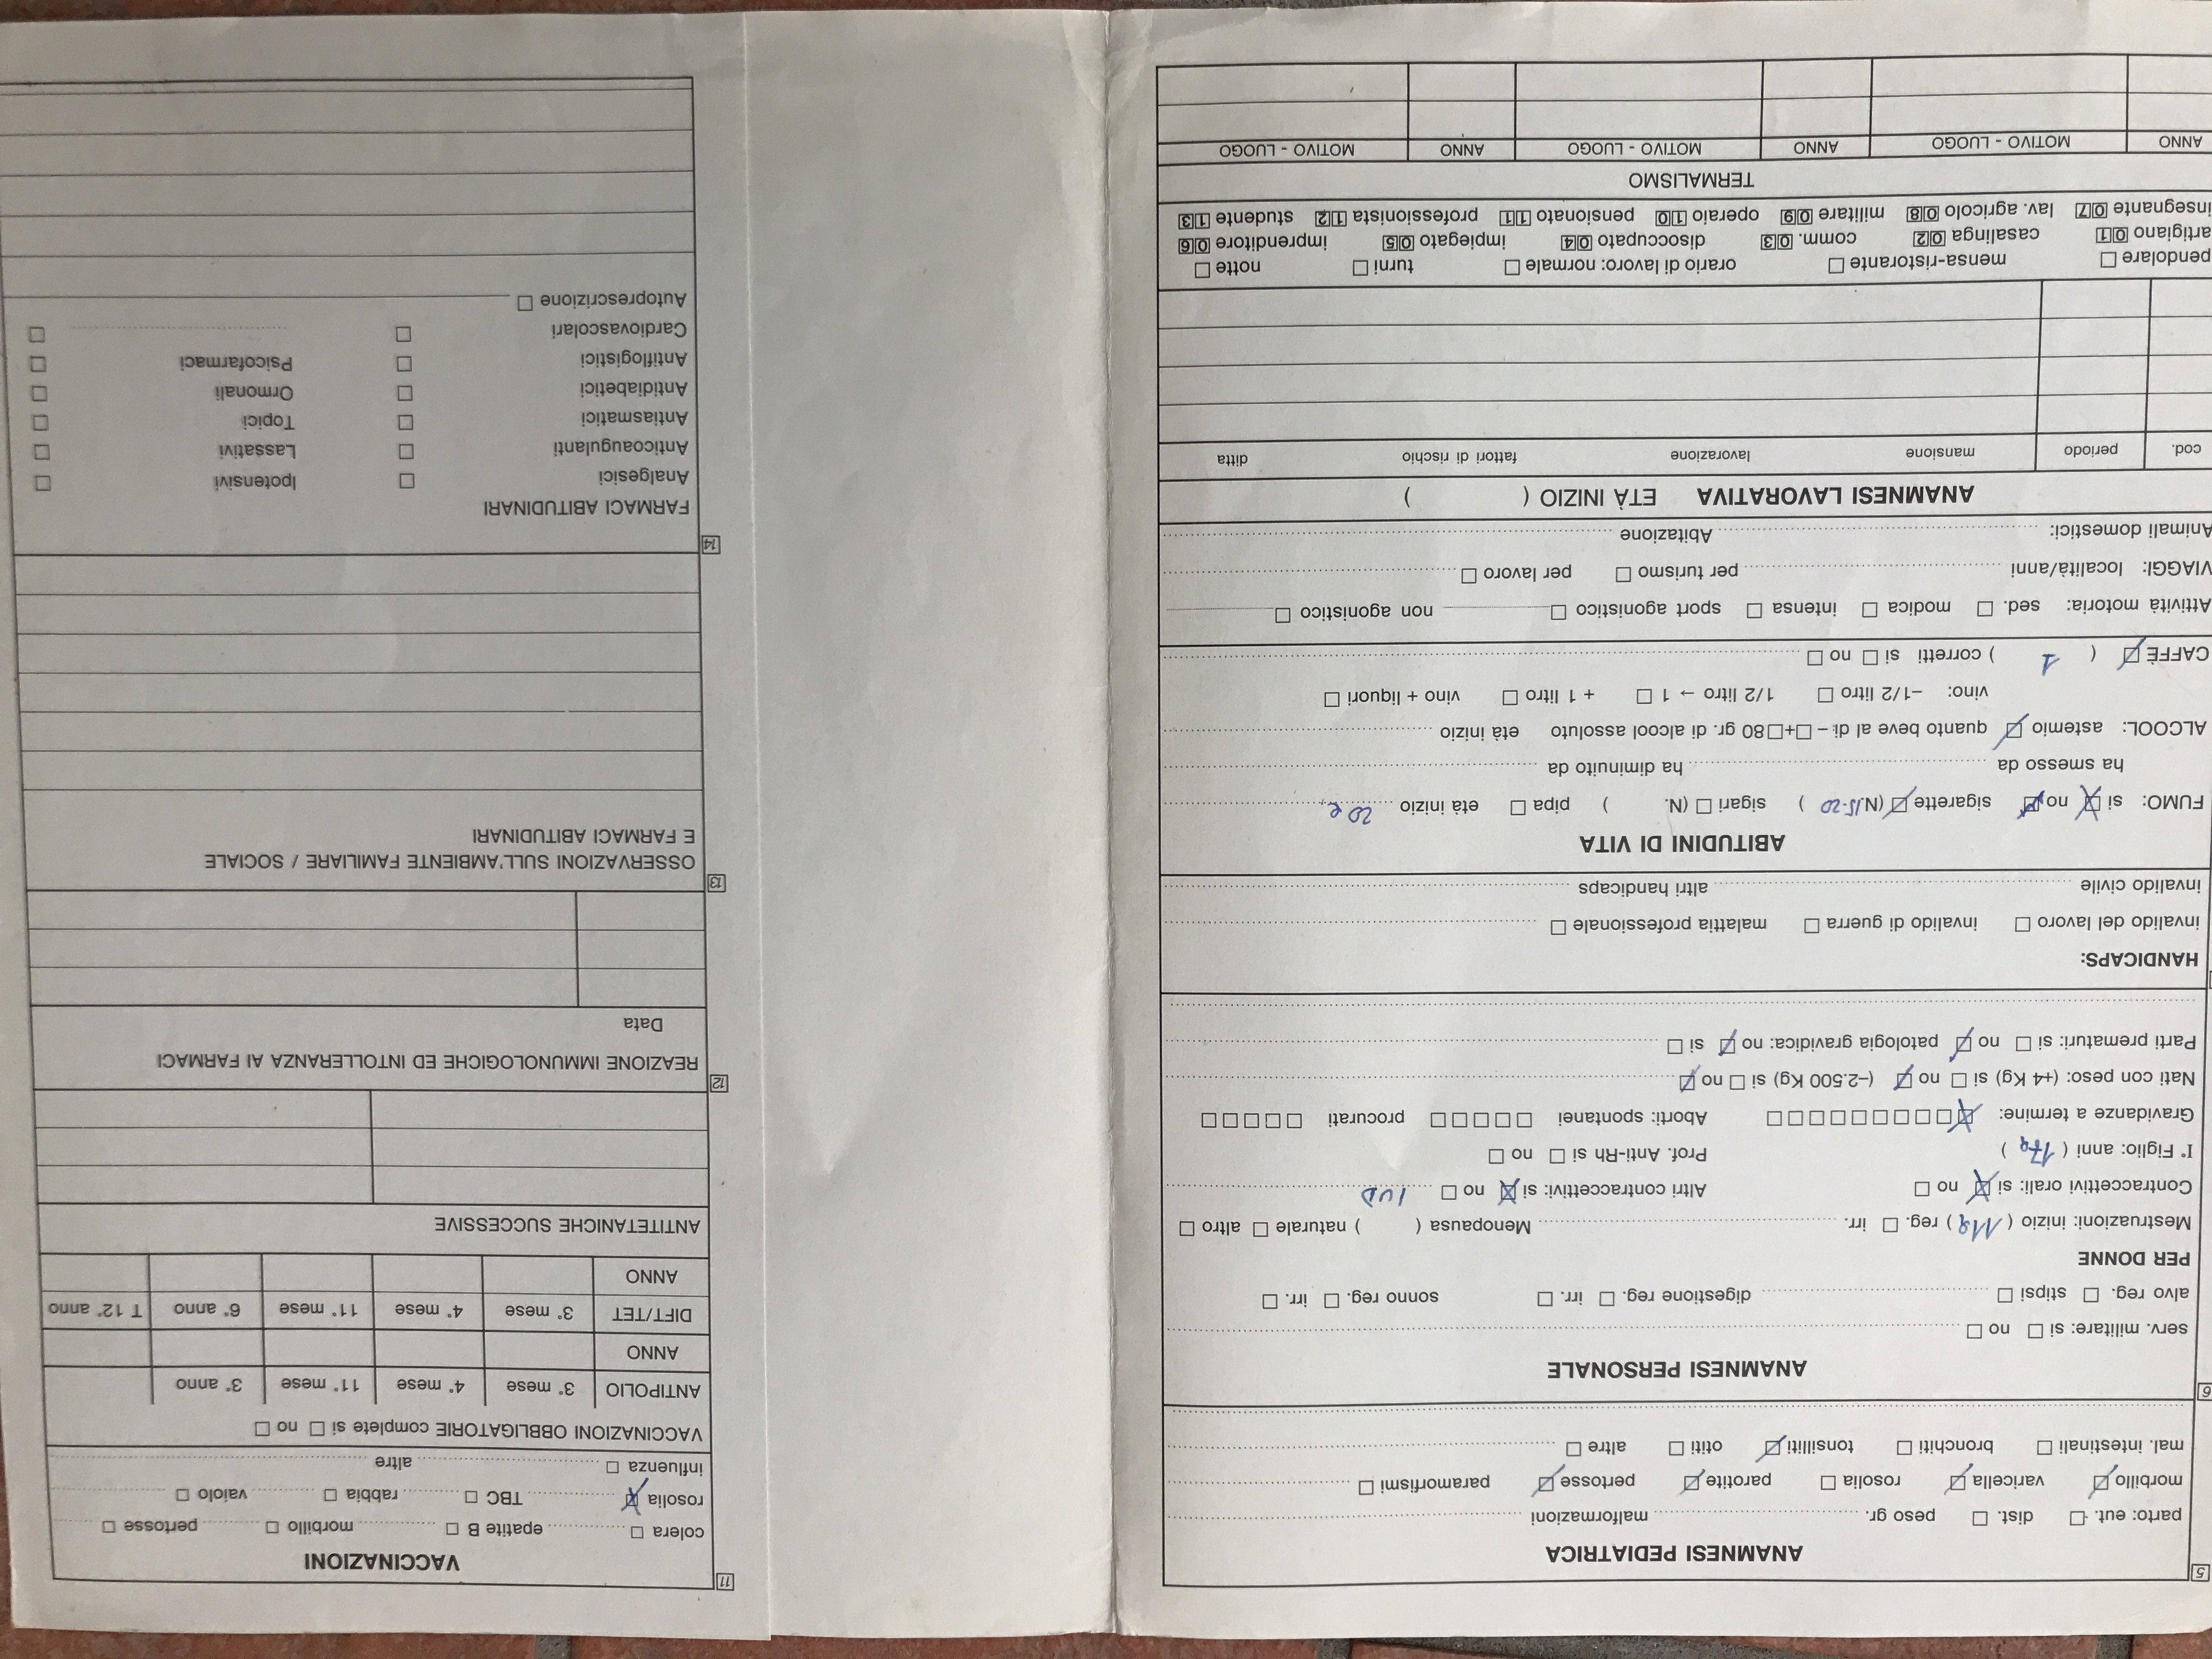 5
ANAMNESI PEDIATRICA
parto: eut. ☐ dist. ☐ peso gr. malformazioni
morbillo ☒ varicella ☒ rosolia ☐ parotite ☒ pertosse ☒ paramorfismi ☐
mal. intestinali ☐ bronchiti ☐ tonsilliti ☒ otiti ☐ altre ☐
6
ANAMNESI PERSONALE
serv. militare: si ☐ no ☐
alvo reg. ☐ stipsi ☐ digestione reg. ☐ irr. ☐ sonno reg. ☐ irr. ☐
PER DONNE
Mestruazioni: inizio ( 11a ) reg. ☐ irr. Menopausa ( ) naturale ☐ altro ☐
Contraccettivi orali: si ☒ no ☐ Altri contraccettivi: si ☒ no ☐ IUD
I° Figlio: anni ( 17a ) Prof. Anti-Rh si ☐ no ☐
Gravidanze a termine: ☒☐☐☐☐☐☐☐☐☐ Aborti: spontanei ☐☐☐☐☐ procurati ☐☐☐☐☐
Nati con peso: (+4 Kg) si ☐ no ☒ (–2.500 Kg) si ☐ no ☒
Parti prematuri: si ☐ no ☒ patologia gravidica: no ☒ si ☐
HANDICAPS:
invalido del lavoro ☐ invalido di guerra ☐ malattia professionale ☐
invalido civile altri handicaps
ABITUDINI DI VITA
FUMO: si ☒ no ☒ sigarette ☒ (N. 15-20 ) sigari ☐ (N. ) pipa ☐ età inizio 20 a
ha smesso da ha diminuito da
ALCOOL: astemio ☒ quanto beve al di – ☐+☐80 gr. di alcool assoluto età inizio
vino: –1/2 litro ☐ 1/2 litro → 1 ☐ + 1 litro ☐ vino + liquori ☐
CAFFÈ ☒ ( 1 ) corretti si ☐ no ☐
Attività motoria: sed. ☐ modica ☐ intensa ☐ sport agonistico ☐ non agonistico ☐
VIAGGI: località/anni per turismo ☐ per lavoro ☐
Animali domestici: Abitazione
ANAMNESI LAVORATIVA ETÀ INIZIO ( )
cod. periodo mansione lavorazione fattori di rischio ditta
pendolare ☐ mensa-ristorante ☐ orario di lavoro: normale ☐ turni ☐ notte ☐
artigiano 01 casalinga 02 comm. 03 disoccupato 04 impiegato 05 imprenditore 06
insegnante 07 lav. agricolo 08 militare 09 operaio 10 pensionato 11 professionista 12 studente 13
TERMALISMO
ANNO MOTIVO - LUOGO ANNO MOTIVO - LUOGO ANNO MOTIVO - LUOGO
11
VACCINAZIONI
colera ☐ epatite B ☐ morbillo ☐ pertosse ☐
rosolia ☒ TBC ☐ rabbia ☐ vaiolo ☐
influenza ☐ altre
VACCINAZIONI OBBLIGATORIE complete si ☐ no ☐
ANTIPOLIO 3° mese 4° mese 11° mese 3° anno
ANNO
DIFT/TET 3° mese 4° mese 11° mese 6° anno T 12° anno
ANNO
ANTITETANICHE SUCCESSIVE
12
REAZIONE IMMUNOLOGICHE ED INTOLLERANZA AI FARMACI
Data
13
OSSERVAZIONI SULL'AMBIENTE FAMILIARE / SOCIALE
E FARMACI ABITUDINARI
14
FARMACI ABITUDINARI
Analgesici ☐ Ipotensivi ☐
Anticoaugulanti ☐ Lassativi ☐
Antiasmatici ☐ Topici ☐
Antidiabetici ☐ Ormonali ☐
Antiflogistici ☐ Psicofarmaci ☐
Cardiovascolari ☐ ☐
Autoprescrizione ☐